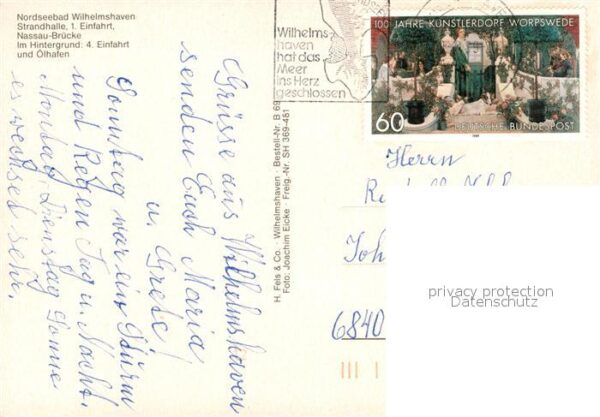 Nordseebad Wilhelmshaven
Strandhalle, 1. Einfahrt,
Nassau-Brücke
Im Hintergrund: 4. Einfahrt
und Ölhafen
Grüsse aus Wilhelmshaven
senden Euch Maria
u. Grete!
Sonnstag war ein Sturm
und Regen Tag u. Nacht.
Montag, Dienstag Sonne
es wechselt sehr.
H. Fels & Co. · Wilhelmshaven · Bestell-Nr. B 69
Foto: Joachim Eicke · Freig.-Nr. SH 369-481
Wilhelms-
haven
hat das
Meer
ins Herz
geschlossen
100 JAHRE KÜNSTLERDORF WORPSWEDE
60 DEUTSCHE BUNDESPOST
Herrn
Joh
6840
privacy protection
Datenschutz